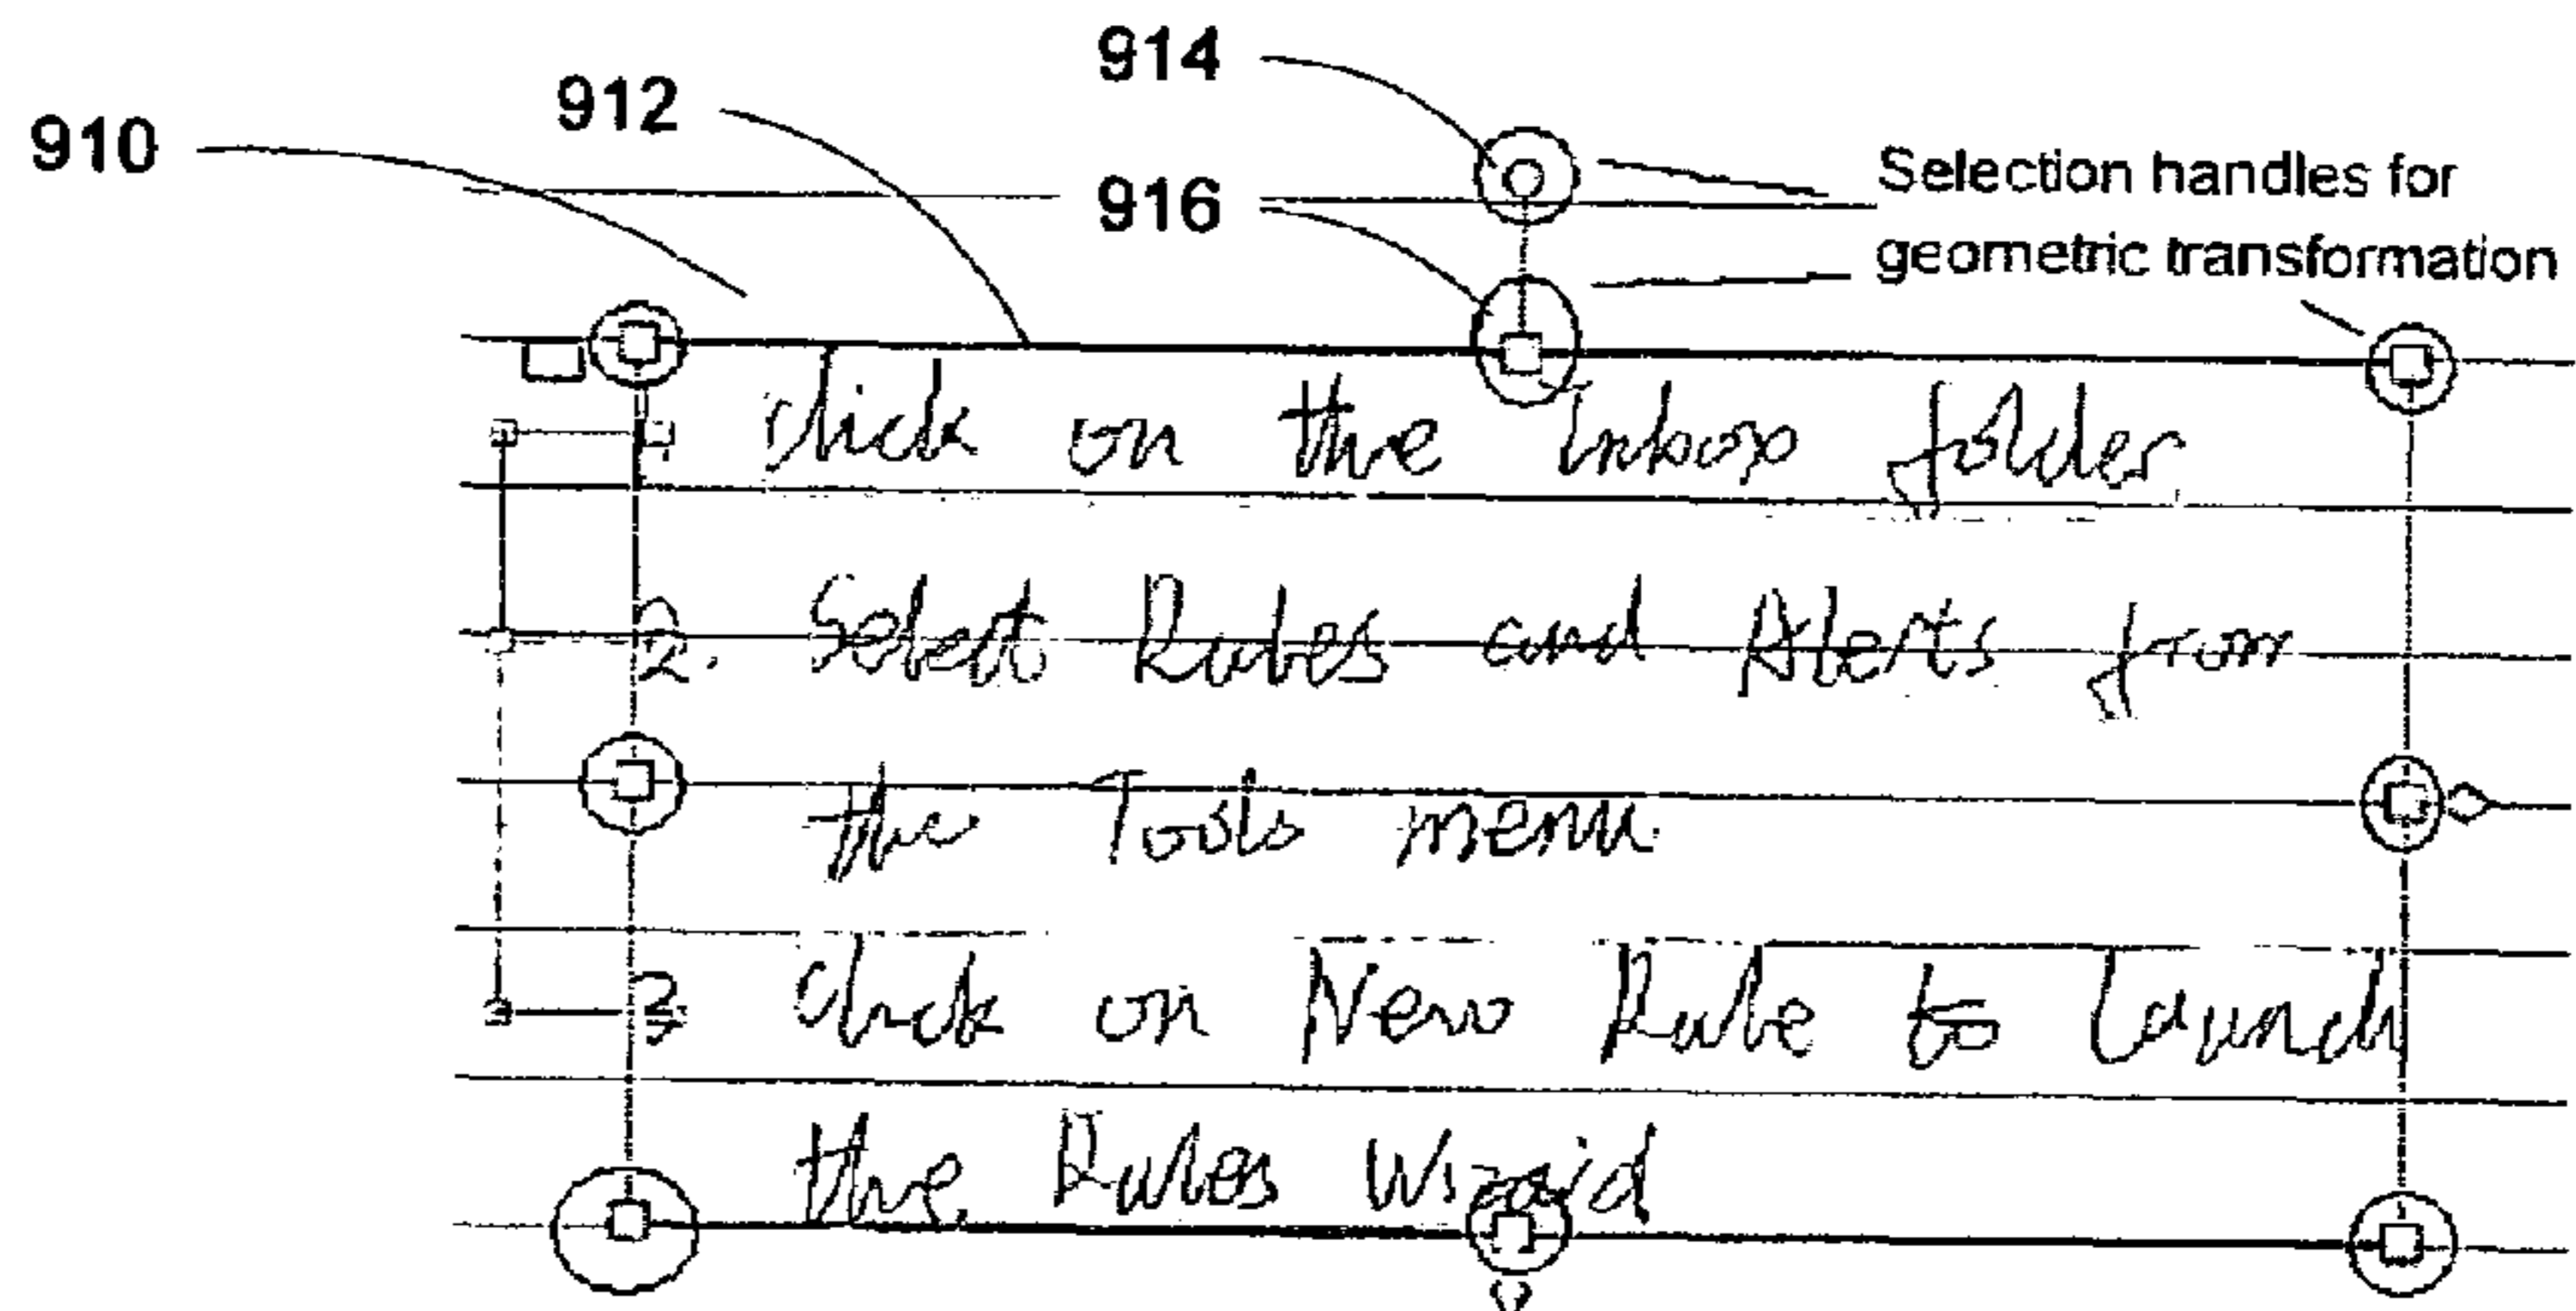 914
912
910
916
Selection handles for
geometric transformation
1 Click on the Inbox folder
2. Select Rules and Alerts from
the Tools menu
3 Click on New Rule to launch
the Rules Wizard